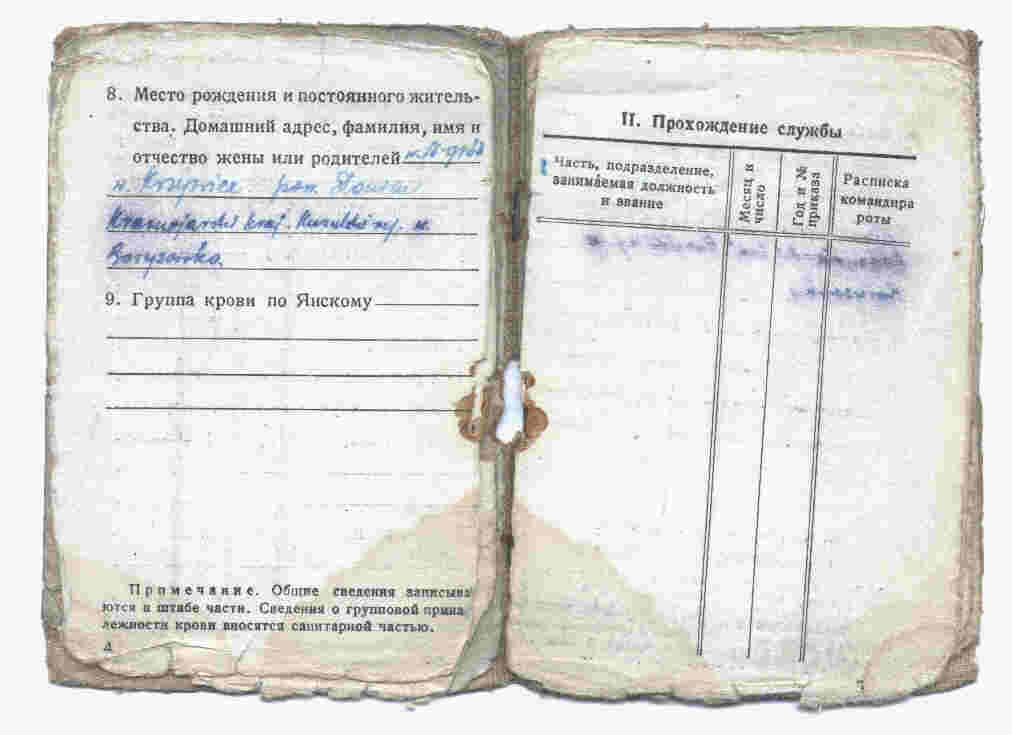 8. Место рождения и постоянного житель-
ства. Домашний адрес, фамилия, имя и
отчество жены или родителей
Krasnojarski kraj.
9. Группа крови по Янскому
Примечание. Общие сведения записыва
ются в штабе части. Сведения о групповой прина
лежности крови вносятся санитарной частью.
4
II. Прохождение службы
Часть, подразделение,
занимаемая должность
и звание
Месяц и
число
Год и №
приказа
Расписка
командира
роты